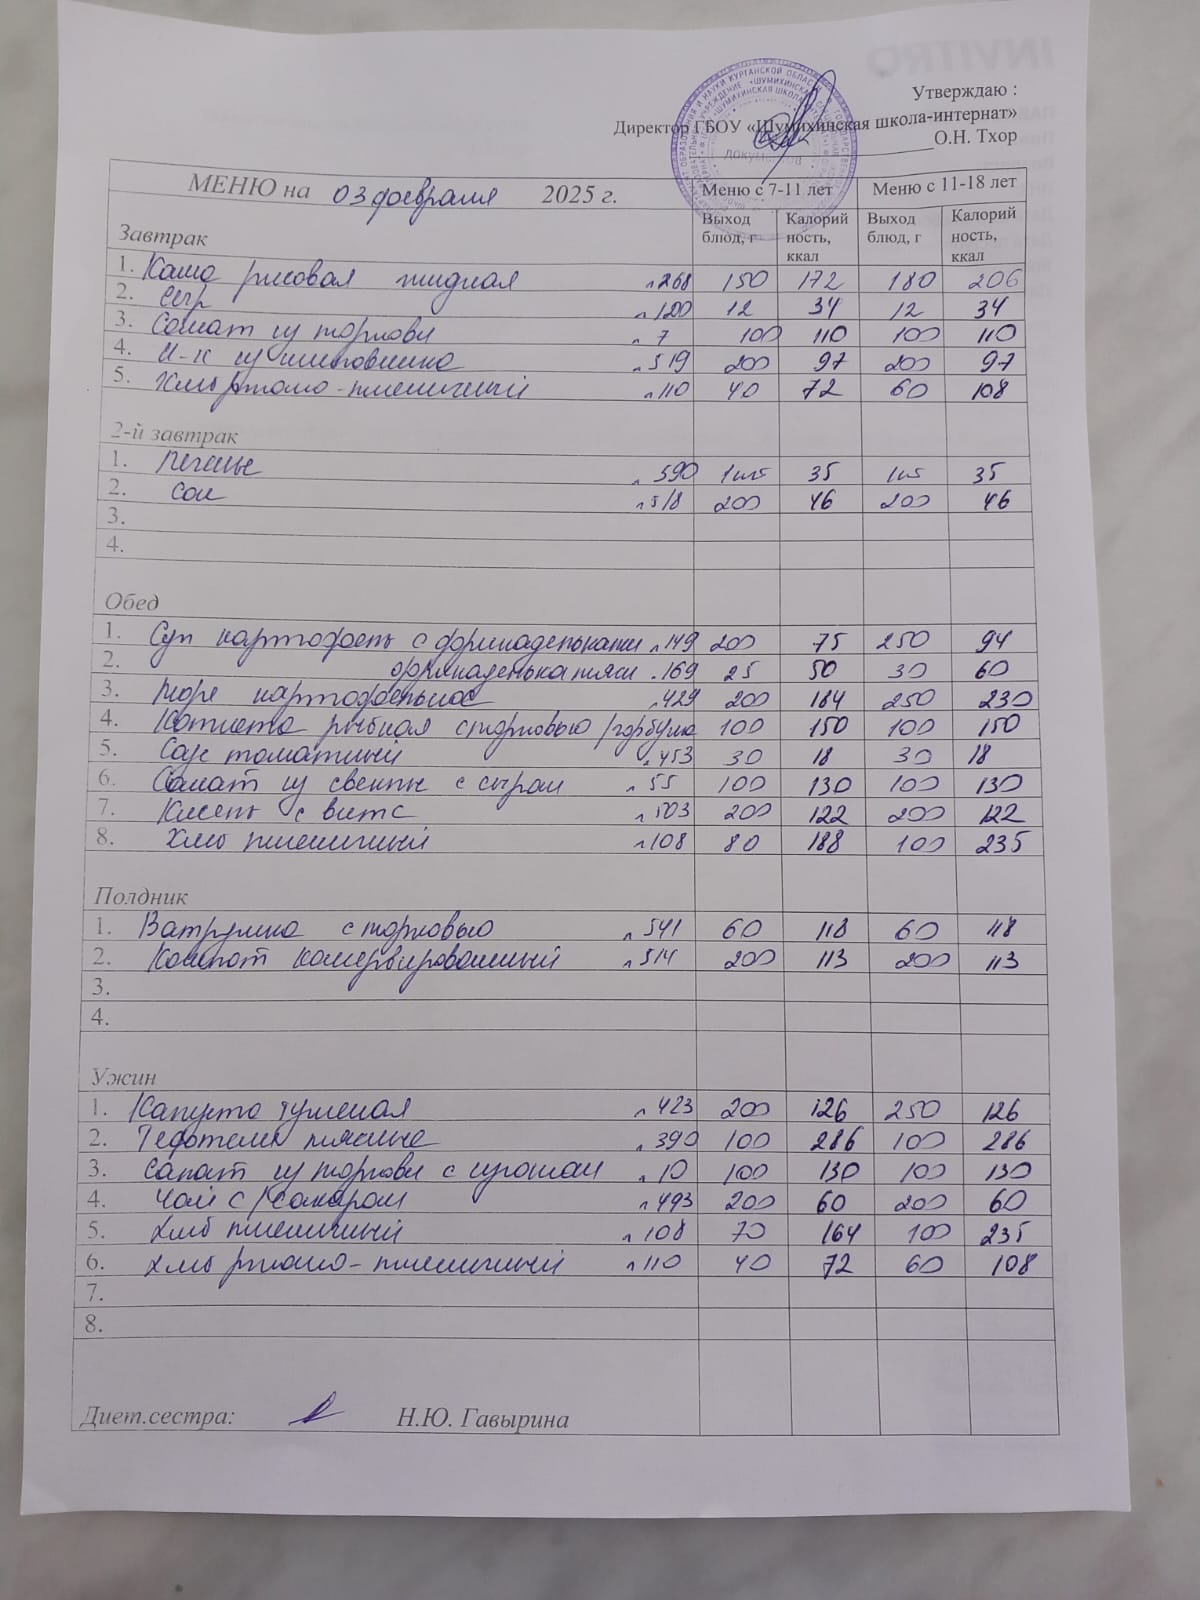 Утверждаю :
Директор ГБОУ «Шумихинская школа-интернат»
О.Н. Тхор
МЕНЮ на 03 февраля 2025 г. Меню с 7-11 лет Меню с 11-18 лет
Завтрак Выход блюд, г Калорий ность, ккал Выход блюд, г Калорий ность, ккал
1. Каша рисовая жидкая л268 150 172 180 206
2. сыр л100 12 34 12 34
3. Салат из моркови л7 100 110 100 110
4. Н-к из шиповника л519 200 97 200 97
5. Хлеб ржано-пшеничный л110 40 72 60 108
2-й завтрак
1. Печенье л590 1шт 35 1шт 35
2. сок л518 200 46 200 46
3.
4.
Обед
1. Суп картофель с фрикадельками л149 200 75 250 94
2. фрикаделька мясн .169 25 50 30 60
3. Пюре картофельное л429 200 184 250 230
4. Котлета рыбная с морковью /горбуша 100 150 100 150
5. Соус томатный л453 30 18 30 18
6. Салат из свеклы с сыром л55 100 130 100 130
7. Кисель с вит с л503 200 122 200 122
8. Хлеб пшеничный л108 80 188 100 235
Полдник
1. Ватрушка с морковью л541 60 118 60 118
2. Компот консервированный л514 200 113 200 113
3.
4.
Ужин
1. Капуста тушеная л423 200 126 250 126
2. Тефтели мясные л390 100 286 100 286
3. салат из моркови с изюмом л10 100 130 100 130
4. Чай с/сахаром л493 200 60 200 60
5. хлеб пшеничный л108 70 164 100 235
6. хлеб ржано-пшеничный л110 40 72 60 108
7.
8.
Диет.сестра: Н.Ю. Гавырина